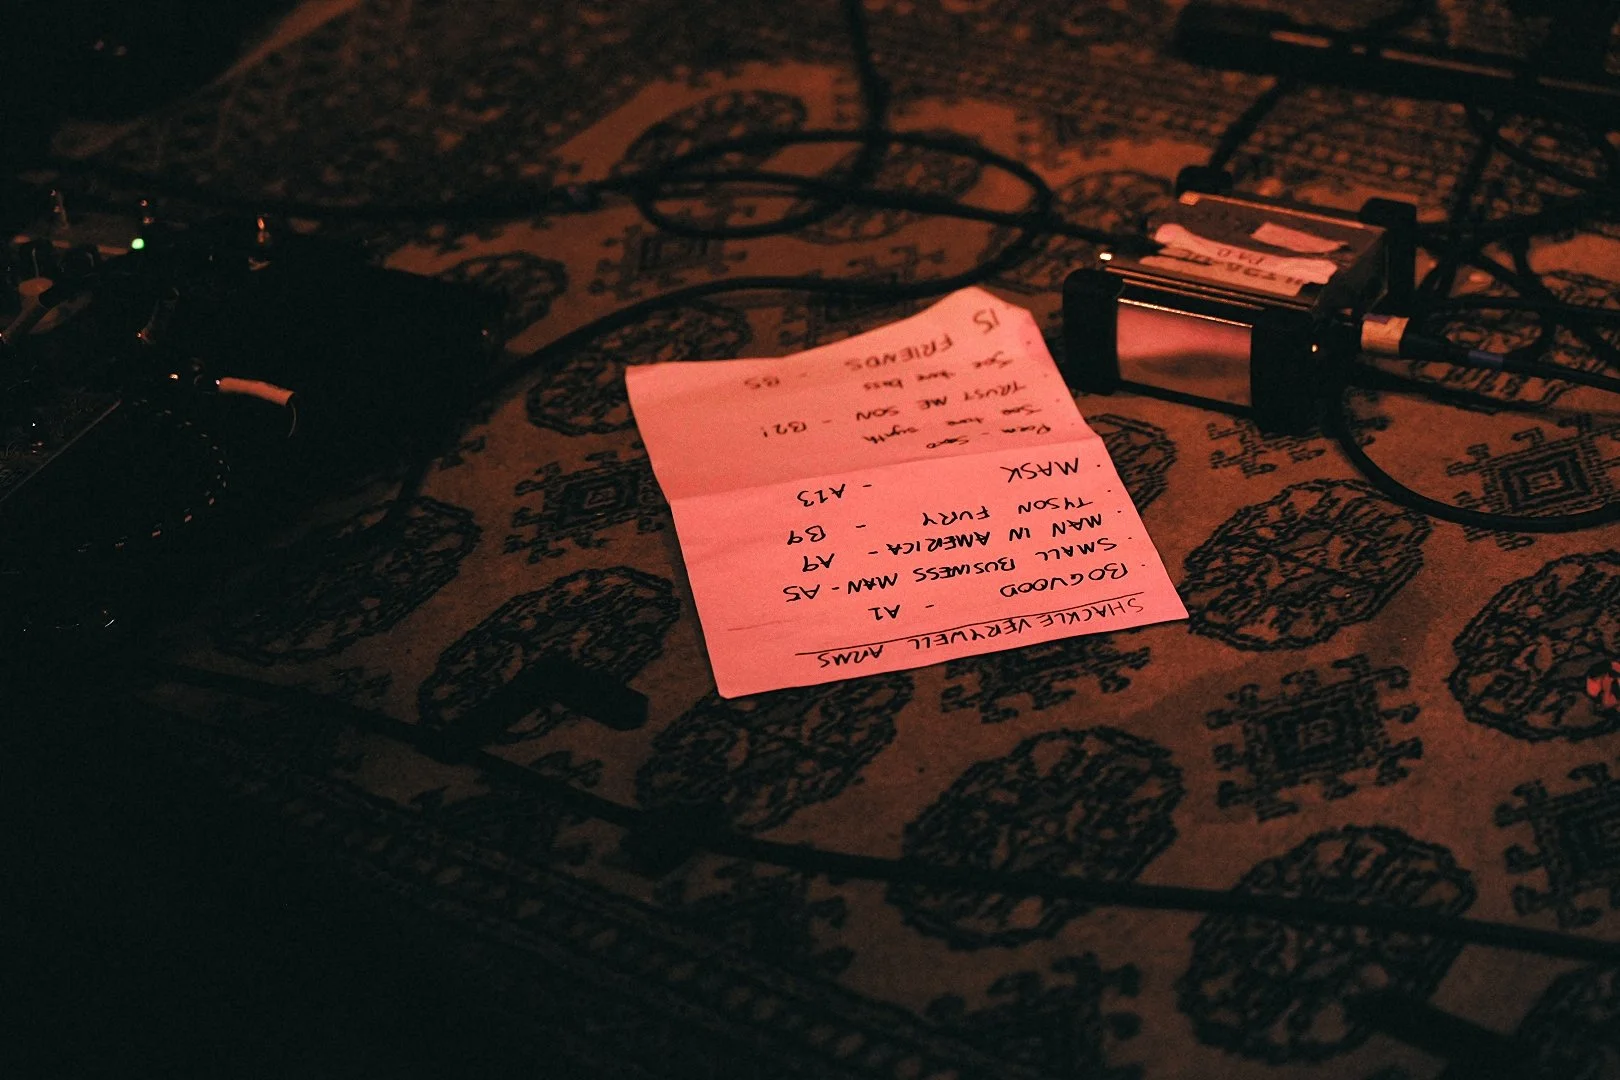 SHACKLEVERYWELL ARMS
· BOGWOOD - A1
· SMALL BUSINESS MAN - A5
· MAN IN AMERICA - A9
· TYSON FURY - B9
· MASK - A13
Poem -
tune synth
· TRUST ME SON - B2!
tune bass
· FRIENDS - B5
15